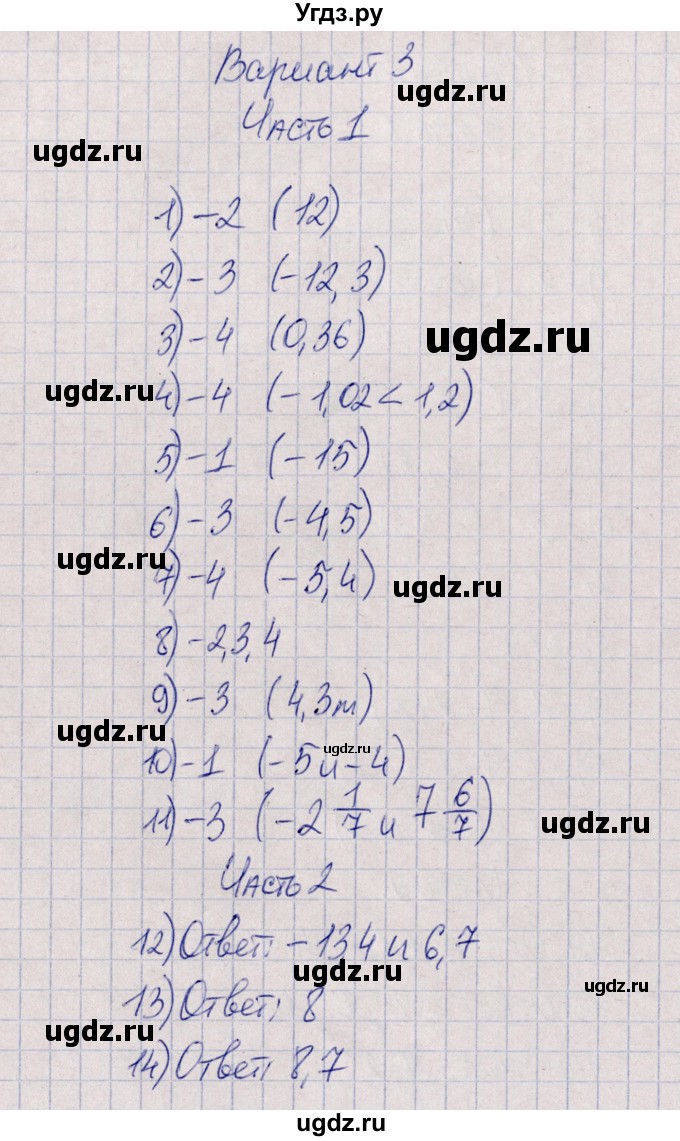 Угдз.ру
Вариант 3
ugdz.ru
Часть 1
ugdz.ru
1) – 2 (12)
2) – 3 (–12,3)
3) – 4 (0,36)
ugdz.ru
ugdz.ru
4) – 4 (–1,02 < 1,2)
5) – 1 (–15)
6) – 3 (–4,5)
ugdz.ru
7) – 4 (–5,4)
ugdz.ru
8) – 2,3,4
9) – 3 (4,3m)
ugdz.ru
ugdz.ru
10) – 1 (–5 и –4)
11) – 3 (–2 1/7 и 7 6/7)
ugdz.ru
Часть 2
12) Ответ: –134 и 6,7
ugdz.ru
ugdz.ru
13) Ответ: 8
ugdz.ru
14) Ответ: 8,7
ugdz.ru
ugdz.ru